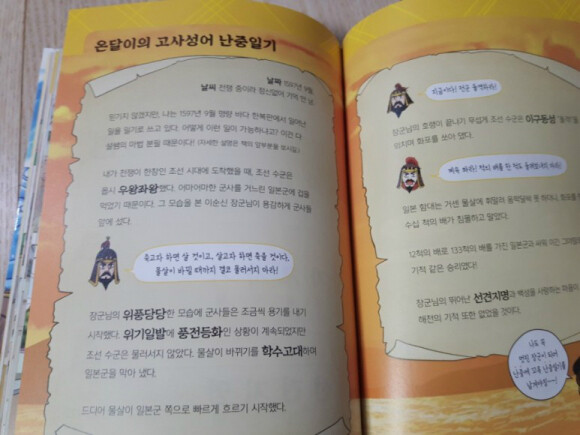 온달이의 고사성어 난중일기
날짜 1597년 9월
날씨 전쟁 중이라 정신없어 기억 안 남.
믿기지 않겠지만, 나는 1597년 9월 명량 바다 한복판에서 일어난
일을 일기로 쓰고 있다. 어떻게 이런 일이 가능하냐고? 이건 다
꿀뺑의 마법 분필 때문이다! (자세한 설명은 책의 앞부분을 보시길)
내가 전쟁이 한창인 조선 시대에 도착했을 때, 조선 수군은
몹시 우왕좌왕했다. 어마어마한 군사를 거느린 일본군에 겁을
먹었기 때문이다. 그 모습을 본 이순신 장군님이 용감하게 군사들
앞에 섰다.
죽고자 하면 살 것이고, 살고자 하면 죽을 것이다.
물살이 바뀔 때까지 결코 물러서지 마라!
장군님의 위풍당당한 모습에 군사들은 조금씩 용기를 내기
시작했다. 위기일발에 풍전등화인 상황이 계속되었지만
조선 수군은 물러서지 않았다. 물살이 바뀌기를 학수고대하며
일본군을 막아 냈다.
드디어 물살이 일본군 쪽으로 빠르게 흐르기 시작했다.
지금이다! 전군 돌격하라!
장군님의 호령이 끝나기 무섭게 조선 수군은 이구동성
외치며 화포를 쏘아 댔다.
적의 배를 한 척도
일본 함대는 거센 물살에 휘말려 옴짝달싹 못 하더니, 화포를
수십 척의 배가 침몰하고 말았다.
12척의 배로 133척의 배를 가진 일본군과 싸워 이긴
기적 같은 승리였다!
장군님의 뛰어난 선견지명과 백성을 사랑하는 마음이
해전의 기적 또한 없었을 것이다.
나도 꼭
멋진 장군이 되어